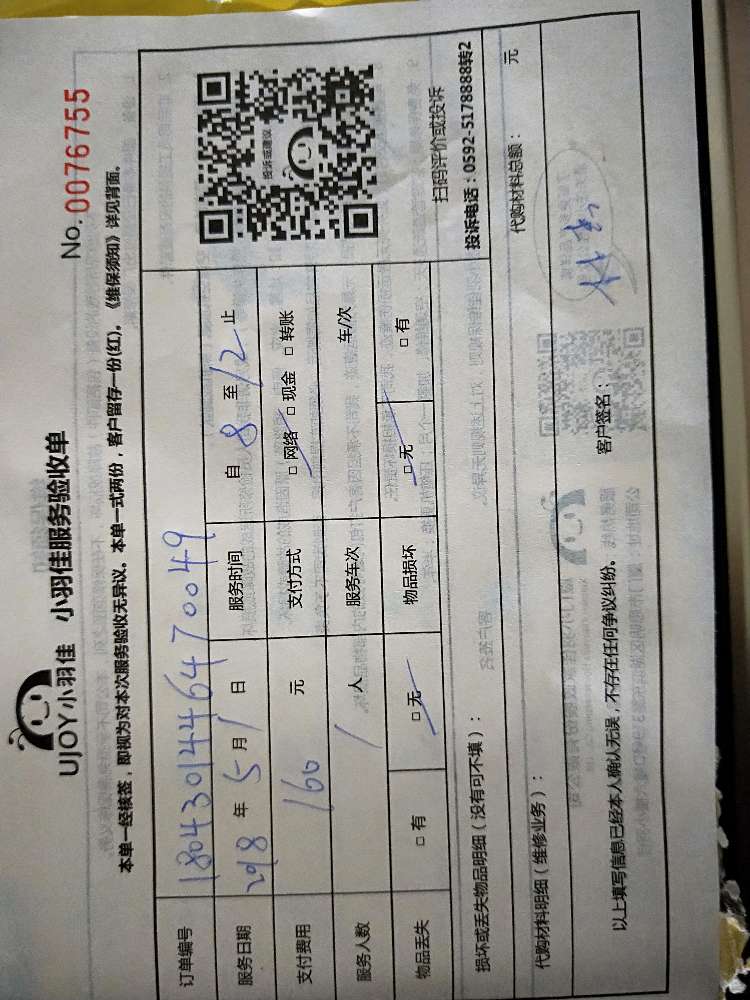 UJOY小羽佳 小羽佳服务验收单
No. 0076755
本单一经核签，即视为对本次服务验收无异议。本单一式两份，客户留存一份(红)。《维保须知》详见背面。
订单编号 180430144647 0049
服务日期 2018 年 5 月 1 日 服务时间 自 8 至 12 止
支付费用 160 元 支付方式 □ 网络 □ 现金 □ 转账
服务人数 1 人 服务车次 车/次
物品丢失 □ 有 □ 无 物品损坏 □ 无 □ 有
投诉或建议
扫码评价或投诉
投诉电话：0592-5178888转2
损坏或丢失物品明细（没有可不填）：
代购材料明细（维修业务）： 代购材料总额： 元
以上填写信息已经本人确认无误，不存在任何争议纠纷。 客户签名：